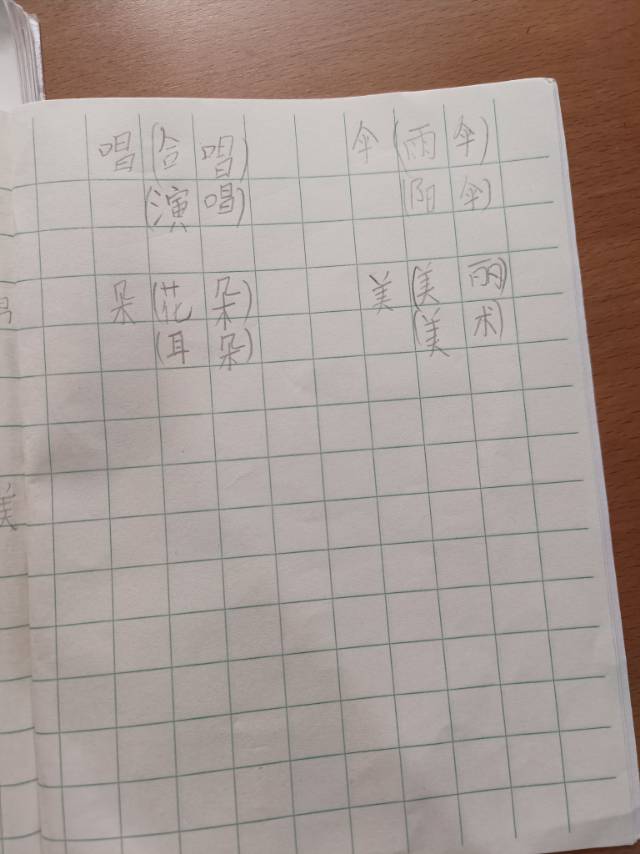 唱(合唱) 伞(雨伞)
(演唱) (阳伞)
朵(花朵) 美(美丽)
(耳朵) (美术)
美